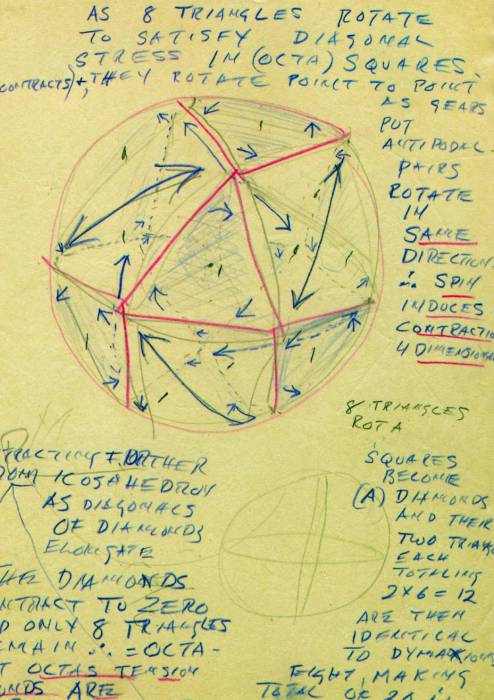 AS 8 TRIANGLES ROTATE
TO SATISFY DIAGONAL
STRESS IN (OCTA) SQUARES.
CONTRACTS) + THEY ROTATE POINT TO POINT
AS GEARS
PUT
ANTIPODAL-
PAIRS
ROTATE
IN
SAME
DIRECTION
∴ SPIN
INDUCES
CONTRACTIO
4 DIMENSIONAL
8 TRIANGLES
ROTA
SQUARES
BECOME
(A) DIAMONDS
AND THEIR
TWO TRIANG
EACH
TOTALING
2X6 = 12
ARE THEN
IDENTICAL
TO DYMAXIONS
EIGHT, MAKING
TOTAL OF
TRACTING FURTHER
FROM ICOSAHEDRON
AS DIAGONALS
OF DIAMONDS
ELONGATE
THE DIAMONDS
NTRACT TO ZERO
D ONLY 8 TRIANGLES
MAIN ∴ = OCTA-
T OCTAS TENSION
ONDS ARE